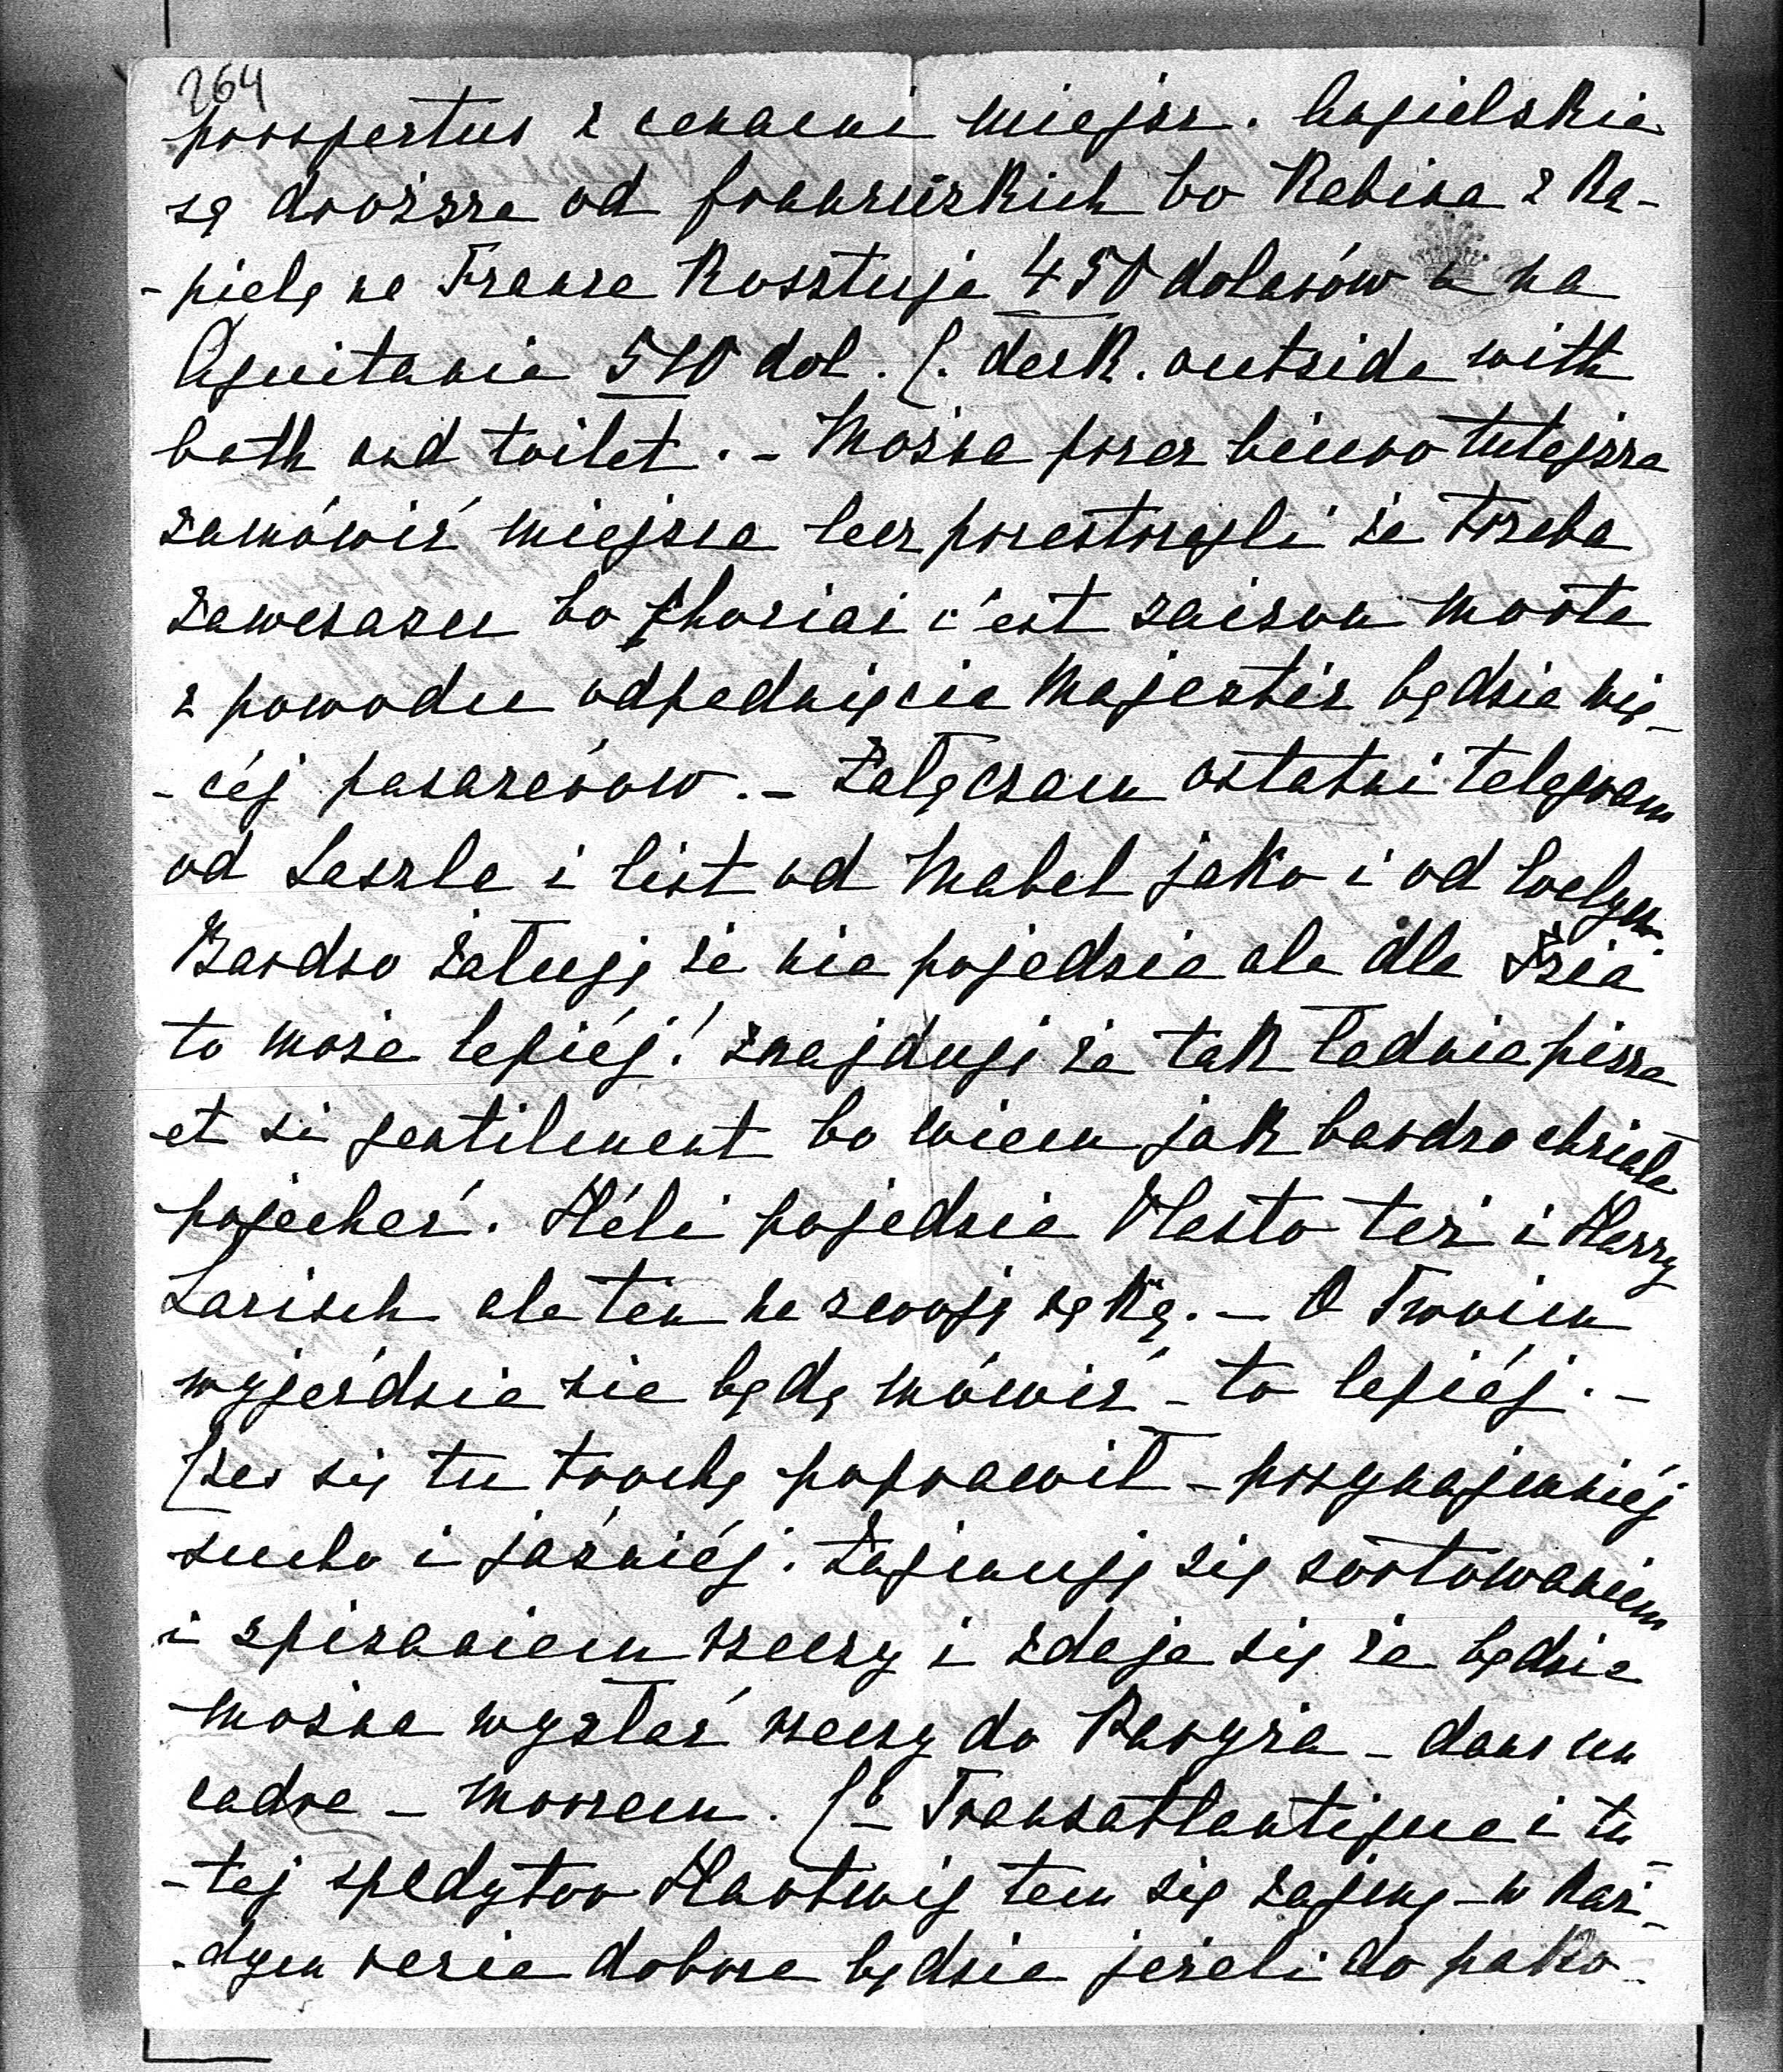 264
prospectus z cenami miejsc. Angielskie
są droższe od francuzkich bo Kabina z Ką-
-pielą na France Kosztuje 450 dolarów a na
Aquitania 510 dol. C. deck. outside with
bath and toilet. - Można przez biuro tutejsze
zamówić miejsca lecz przestrzegli że trzeba
zawczasu bo chociaż c'est saison morte
z powodu odpadnięcia Majestic będzie wię-
-céj pasażerów. - Załączam ostatni telegram
od Laszla i list od Mabel jako i od
Bardzo żałuję że nie pojedzie ale dla
to może lepiéj! znajduję że tak ładnie pisze
et si gentilement bo wiem jak bardzo chciała
pojechać. Héli pojedzie Vlasto też i Harry
Larisch ale ten na swoją rękę. - O Twoim
wyjeździe nie będę mówić - to lepiéj. -
Czas się tu trochę poprawił - przynajmniéj
sucho i jaśniéj. Zajmuję się sortowaniem
i spisaniem rzeczy i zdaje się że będzie
można wysłać rzeczy do Paryża - dans un
cadre - morzem. Cie Transatlantique i tu-
-tej spedytor Hartwig tem się zajmą - w Każ-
-dym razie dobrze będzie jeżeli do pako-